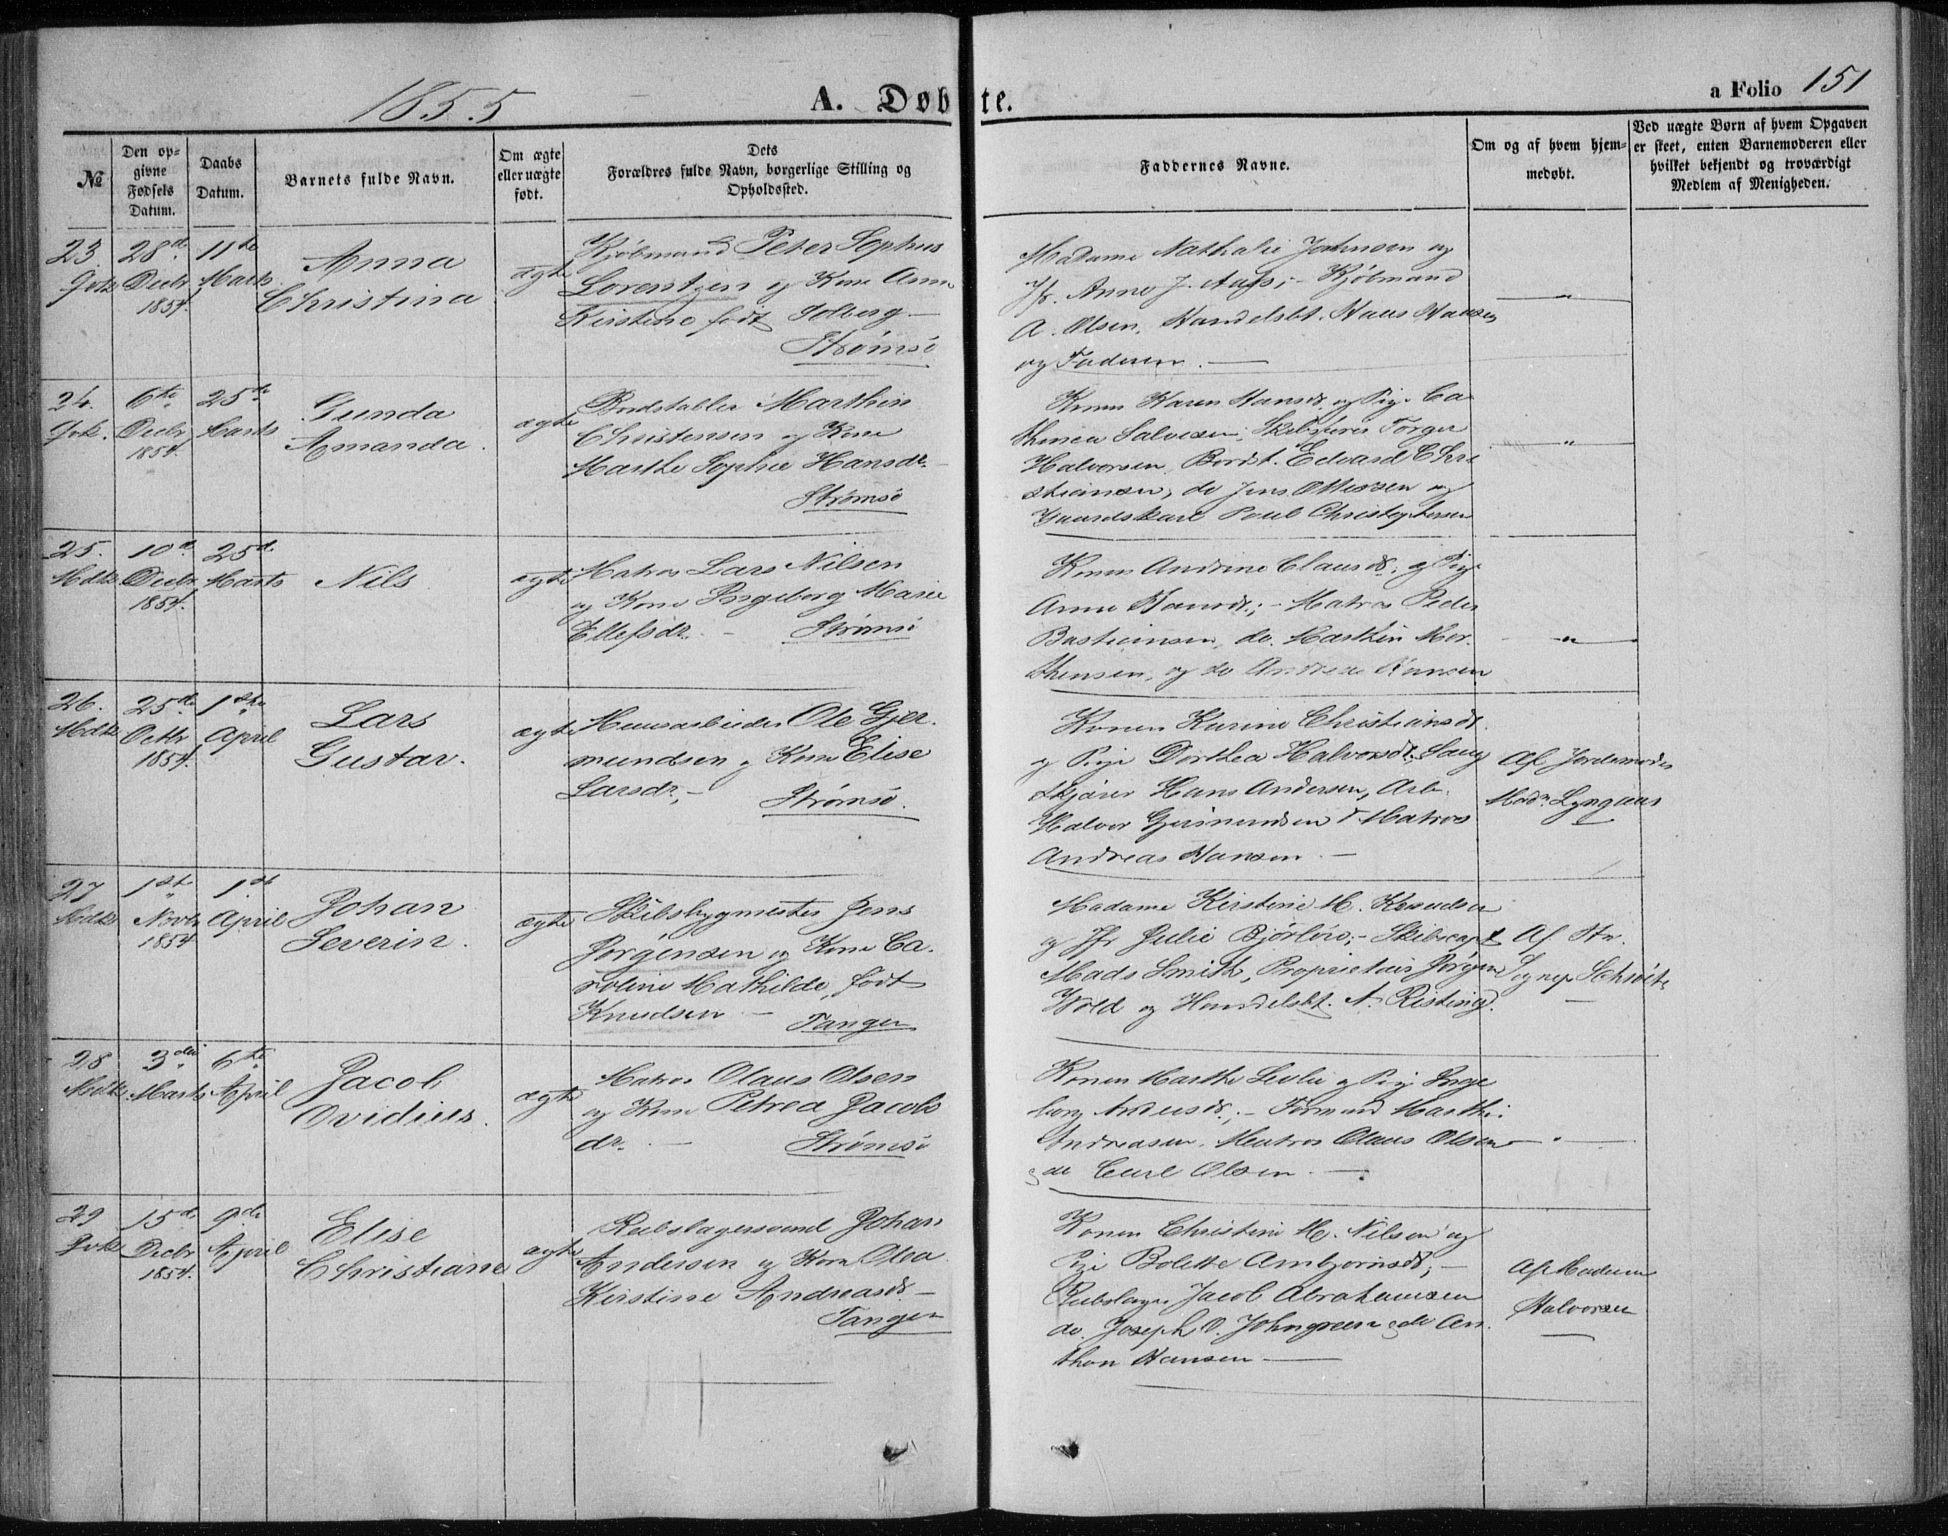 1855
A. Døbte.
a Folio 151
№
Den opgivne Fødsels Datum.
Daabs Datum.
Barnets fulde Navn.
Om ægte eller uægte født.
Dets Forældres fulde Navn, borgerlige Stilling og Opholdssted.
Faddernes Navne.
Om og af hvem hjemmedøbt.
Ved uægte Børn af hvem Opgaven er skeet, enten Barnemoderen eller hvilket bekjendt og troværdigt Medlem af Menigheden.
23. 28d 11te
Decbr Marts
1854.
Anna
Christina
ægte
Kjøbmand Peter Sophus
Lorentzen og Kone Anne
Kirstine født Solberg
Strømsø
Madame Nathalie Johnsen og
Jfr. Anne J. Aass; - Kjøbmand
A. Olsen, Handelsbt. Hans Hansen
og Faderen. —
24. 6te 25de
Decbr Marts
1854.
Gunda
Amanda.
ægte
Bordstabler Marthin
Christensen og Kone
Marthe Sophie Hansdr.
Strømsø
Konen Karen Hansdr. og Pige Ca
Salvesen; Torger
Halvorsen, Bordst. Edvard Chri
stiansen, do Jens Ottersen og
Gaardskarl Poul Christophersen
25. 10d 25d
Mdk. Decbr Marts
1854.
Nils
ægte
Matros Lars Nilsen
og Kone Ingeborg Marie
Ellefsdr. - Strømsø
Konen Andrine Clausdr. og Pige
Anne Hansdr.; - Matros Peder
Bastiansen, do. Marthin Mor
thensen, og do Andreas Hansen
26. 25de 1ste
Mdk. Octbr April
1854.
Lars
Gustav.
ægte
Huusarbeider Ole Gjer
mundsen og Kone Elise
Larsdr., - Strømsø.
Konen Karine Christiansdr.
og Pige Dorthea Halvorsdr. Saug
skjærer Hans Andersen, Arb.
Halvor Gjermundsen & Matros
Andreas Hansen. —
Af Jordemoder
Madm Lyngaas
27 1st 1st
Mdk. Novbr April
1854
Johan
Severin.
ægte
Skibsbygmester Jens
Jørgensen og Kone Ca
roline Mathilde, født
Knudsen - Tangen
Madame Kirstine M. Knudsen
og Jfr Julie Bjørløw; - Skibscapt
Mads Smith, Proprietair Jørgen
Wold og Handelsbt. A. Risting.
Af Hr.
28 3die 6te
Mdk. Marts April
Jacob
Ovidius.
ægte
Matros Olaus Olsen
og Kone Petrea Jacobs
dr. — Strømsø
Konen Marthe Levlie og Pige Inge
borg Andersdr.; - Formand Marthi
Andreasen, Matros Olaus Olsen
og do Carl Olsen. —
29 15d 9de
Decbr April
1854.
Elise
Christiane
ægte
Rebslagersvend Johan
Andersen og Kone Olea
Kirstine Andreasdr. -
Tangen
Konen Christine M. Nilsen og
Pige Bolette Ambjørnsdr; -
Rebslager Jacob Abrahamsen
do. Joseph O. Johngreen og do An
thon Hansen —
Af Madam
Halvorsen